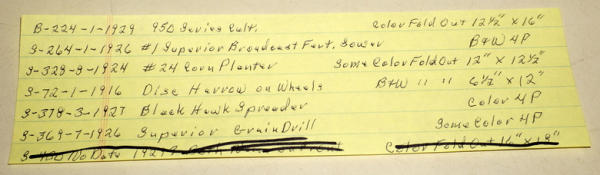 B-224-1-1929 950 Series Cult. Color Fold Out 12½" x 16"
S-264-1-1926 #1 Superior Broadcast Fert. Sower B+W 4P
S-329-9-1924 #24 Corn Planter Some Color Fold Out 12" x 12½"
S-72-1-1916 Disc Harrow on Wheels B+W " " 6½" x 12"
S-378-3-1927 Black Hawk Spreader Color 4P
S-369-7-1926 Superior Grain Drill Some Color 4P
No Date Color Fold Out 16" x 18"